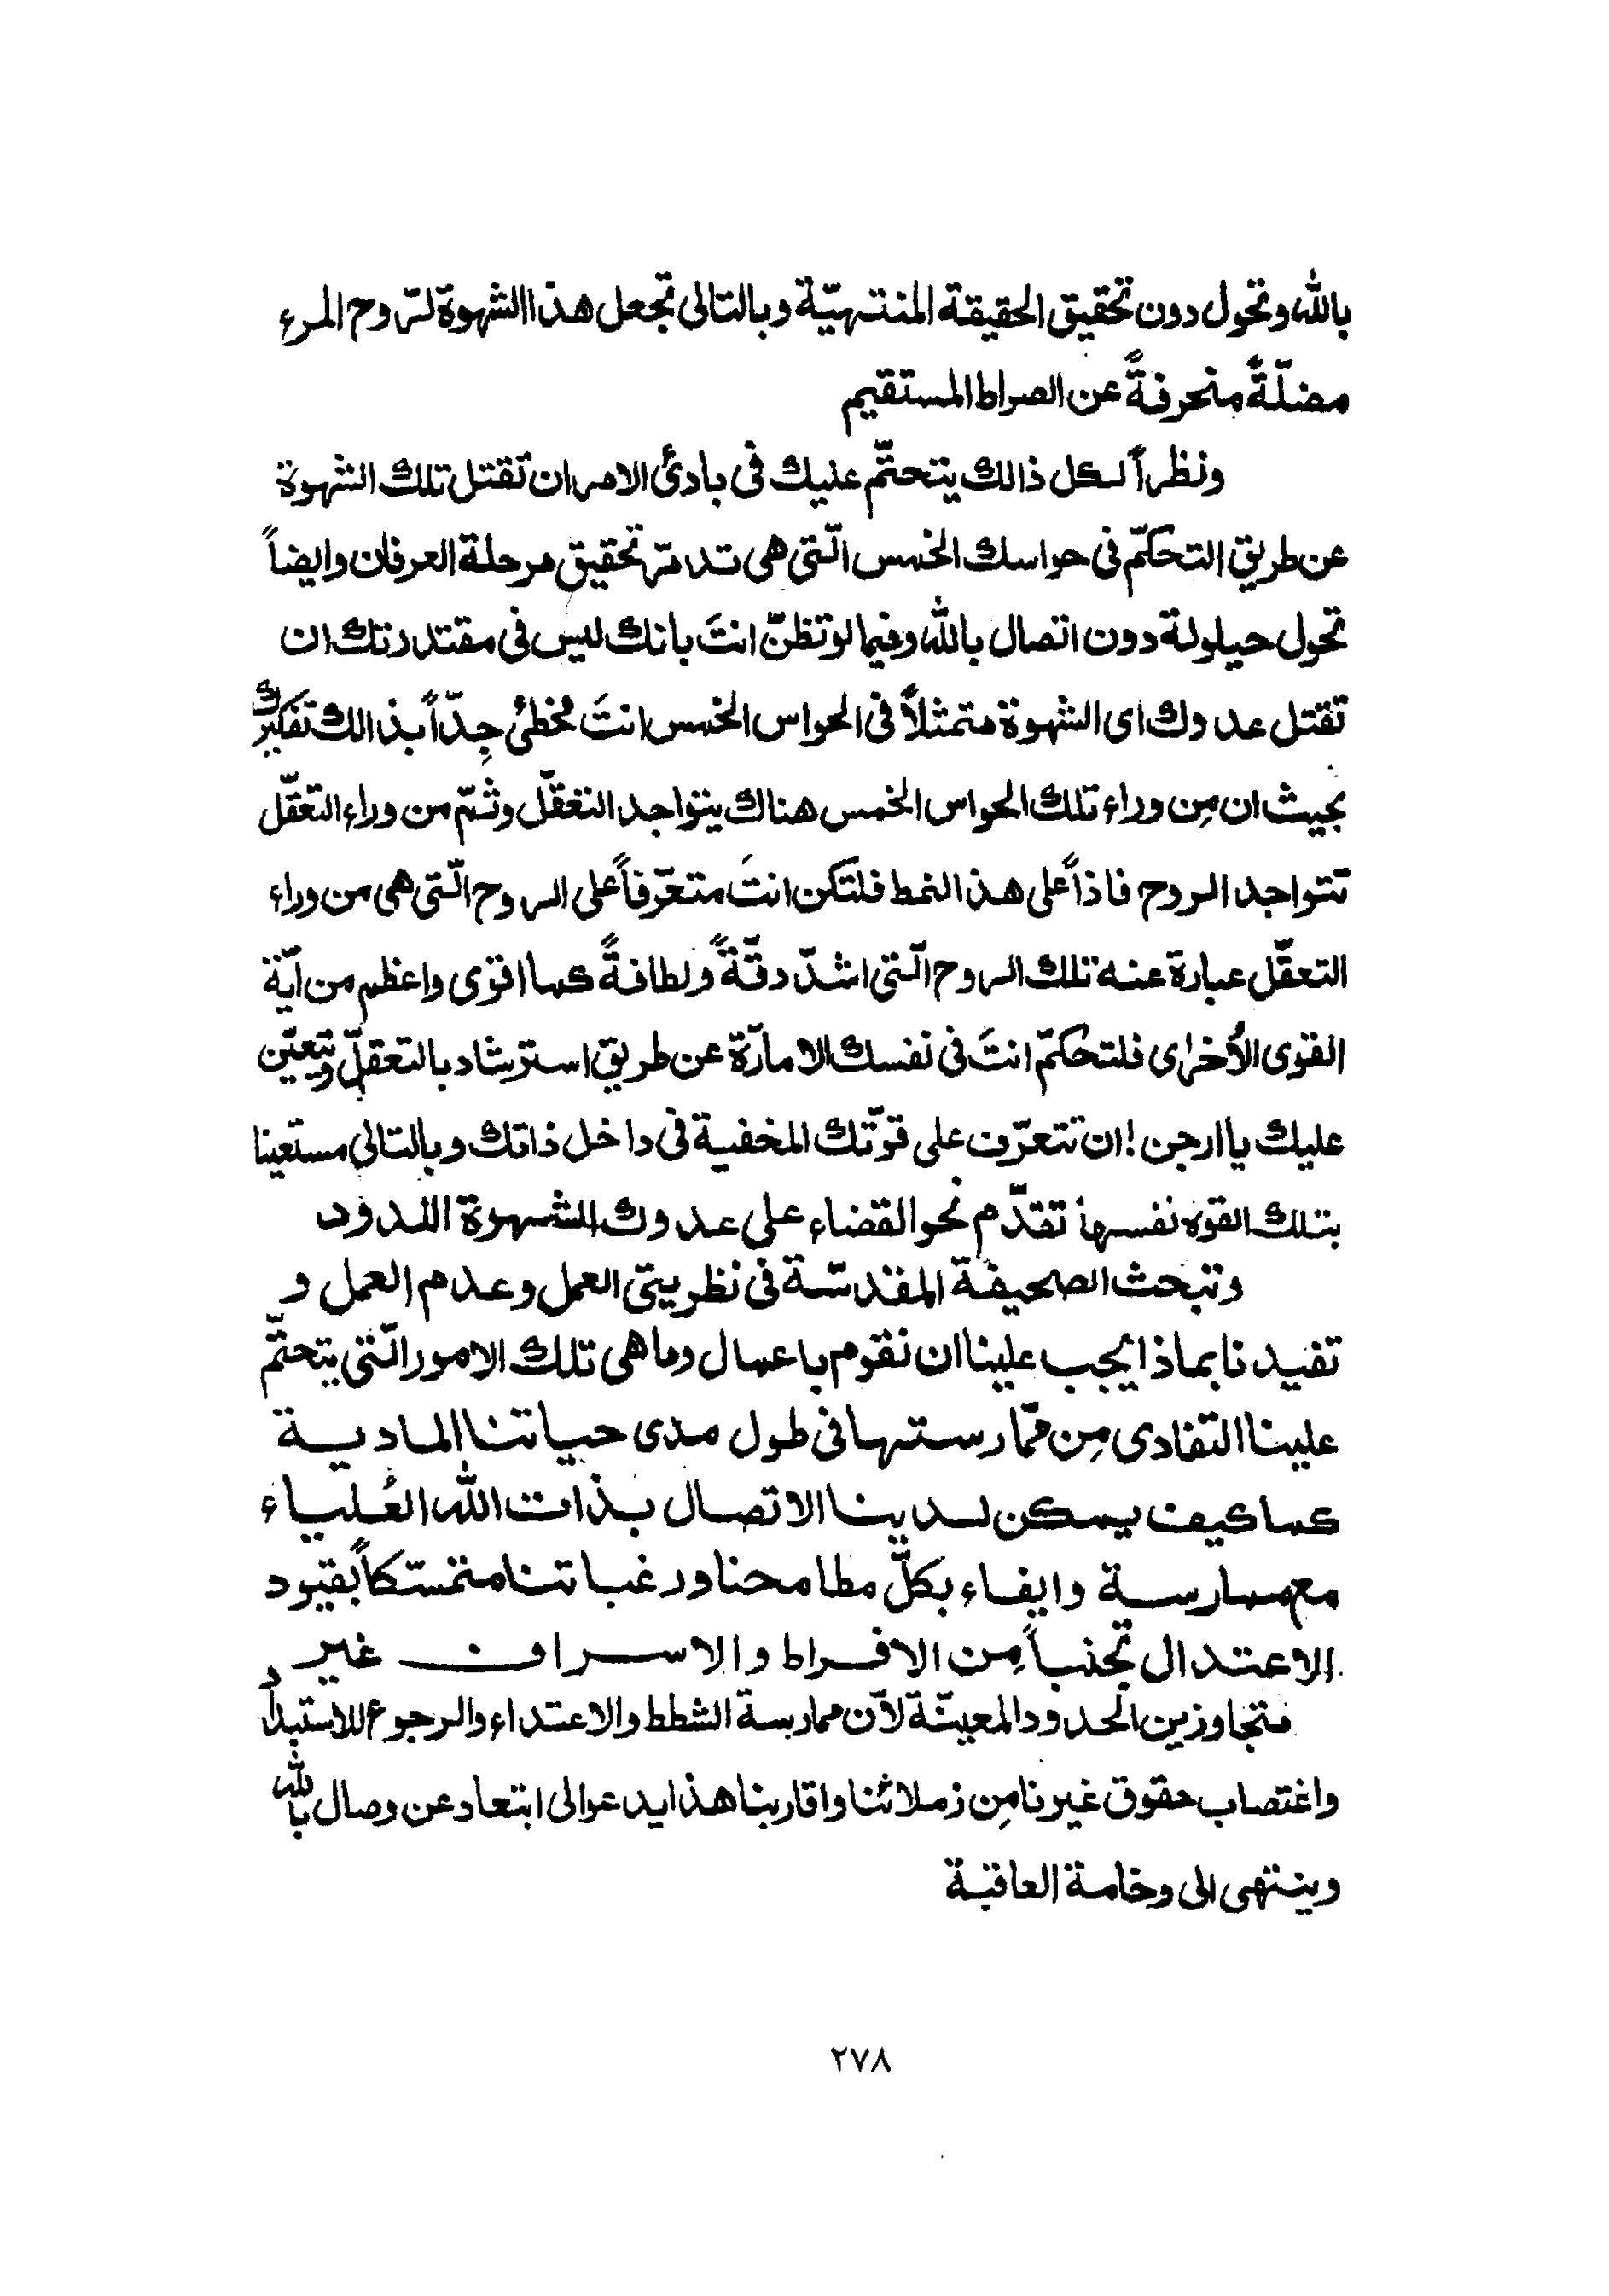 بالله وتحول دون تحقيق الحقيقة المنتهيّة وبالتالى تجعل هذا الشهوة لرّوح المرء
مضلّةً منحرفةً عن الصراط المستقيم
ونظراً لكل ذالك يتحتّم عليك فى بادئ الامر ان تقتل تلك الشهوة
عن طريق التحكّم فى حواسك الخمس الّتى هى تدمّر تحقيق مرحلة العرفان وايضاً
تحول حيلولة دون اتصال بالله وفيما لو تظنّ انتَ بانك ليس فى مقتدرتك ان
تقتل عدوك اى الشهوة متمثلاً فى الحواس الخمس انتَ مخطئ جِدّاً بذالك تفكيرك
بحيث ان مِن وراء تلك الحواس الخمس هناك يتواجد التعقّل وثمّ من وراء التعقّل
تتواجد الروح فاذاً على هذا النمط فلتكن انتَ متعرّفاً على الروح الّتى هى من وراء
التعقّل عبارة عنه تلك الروح الّتى اشدّ دقّةً ولطافةً كما اقوى واعظم من ايّة
القوى الأخرى فلتحكمّ انتَ فى نفسك الامارّة عن طريق استرشاد بالتعقّل ويتعيّن
عليك يا ارجن ! ان تتعرّف على قوّتك المخفية فى داخل ذاتك وبالتالى مستعينا
بتلك القوه نفسها تقدّم نحو القضاء على عدوك الشهوة اللدود
وتبحث الصحيفة المقدسّة فى نظريتى العمل وعدم العمل و
تفيدنا بماذا يجب علينا ان نقوم باعمال وما هى تلك الامور الّتى يتحتّم
علينا التفادى مِن ممّارستها فى طول مدى حياتنا المادية
كما كيف يمكن لدينا الاتصال بذات الله العُلياء
مع ممارسة وايفاء بكلّ مطامحنا ورغباتنا متمسّكاً بقيود
الاعتدال تجنباً مِن الافراط والاسراف غير
متجاوزين الحدود المعينّة لآن ممارسة الشطط والاعتداء والرجوع للاستبداد
واغتصاب حقوق غيرنا مِن زملائنا واقاربنا هذا يدعوا الى ابتعاد عن وصال بالله
وينتهى الى وخامة العاقبة
٢٧٨